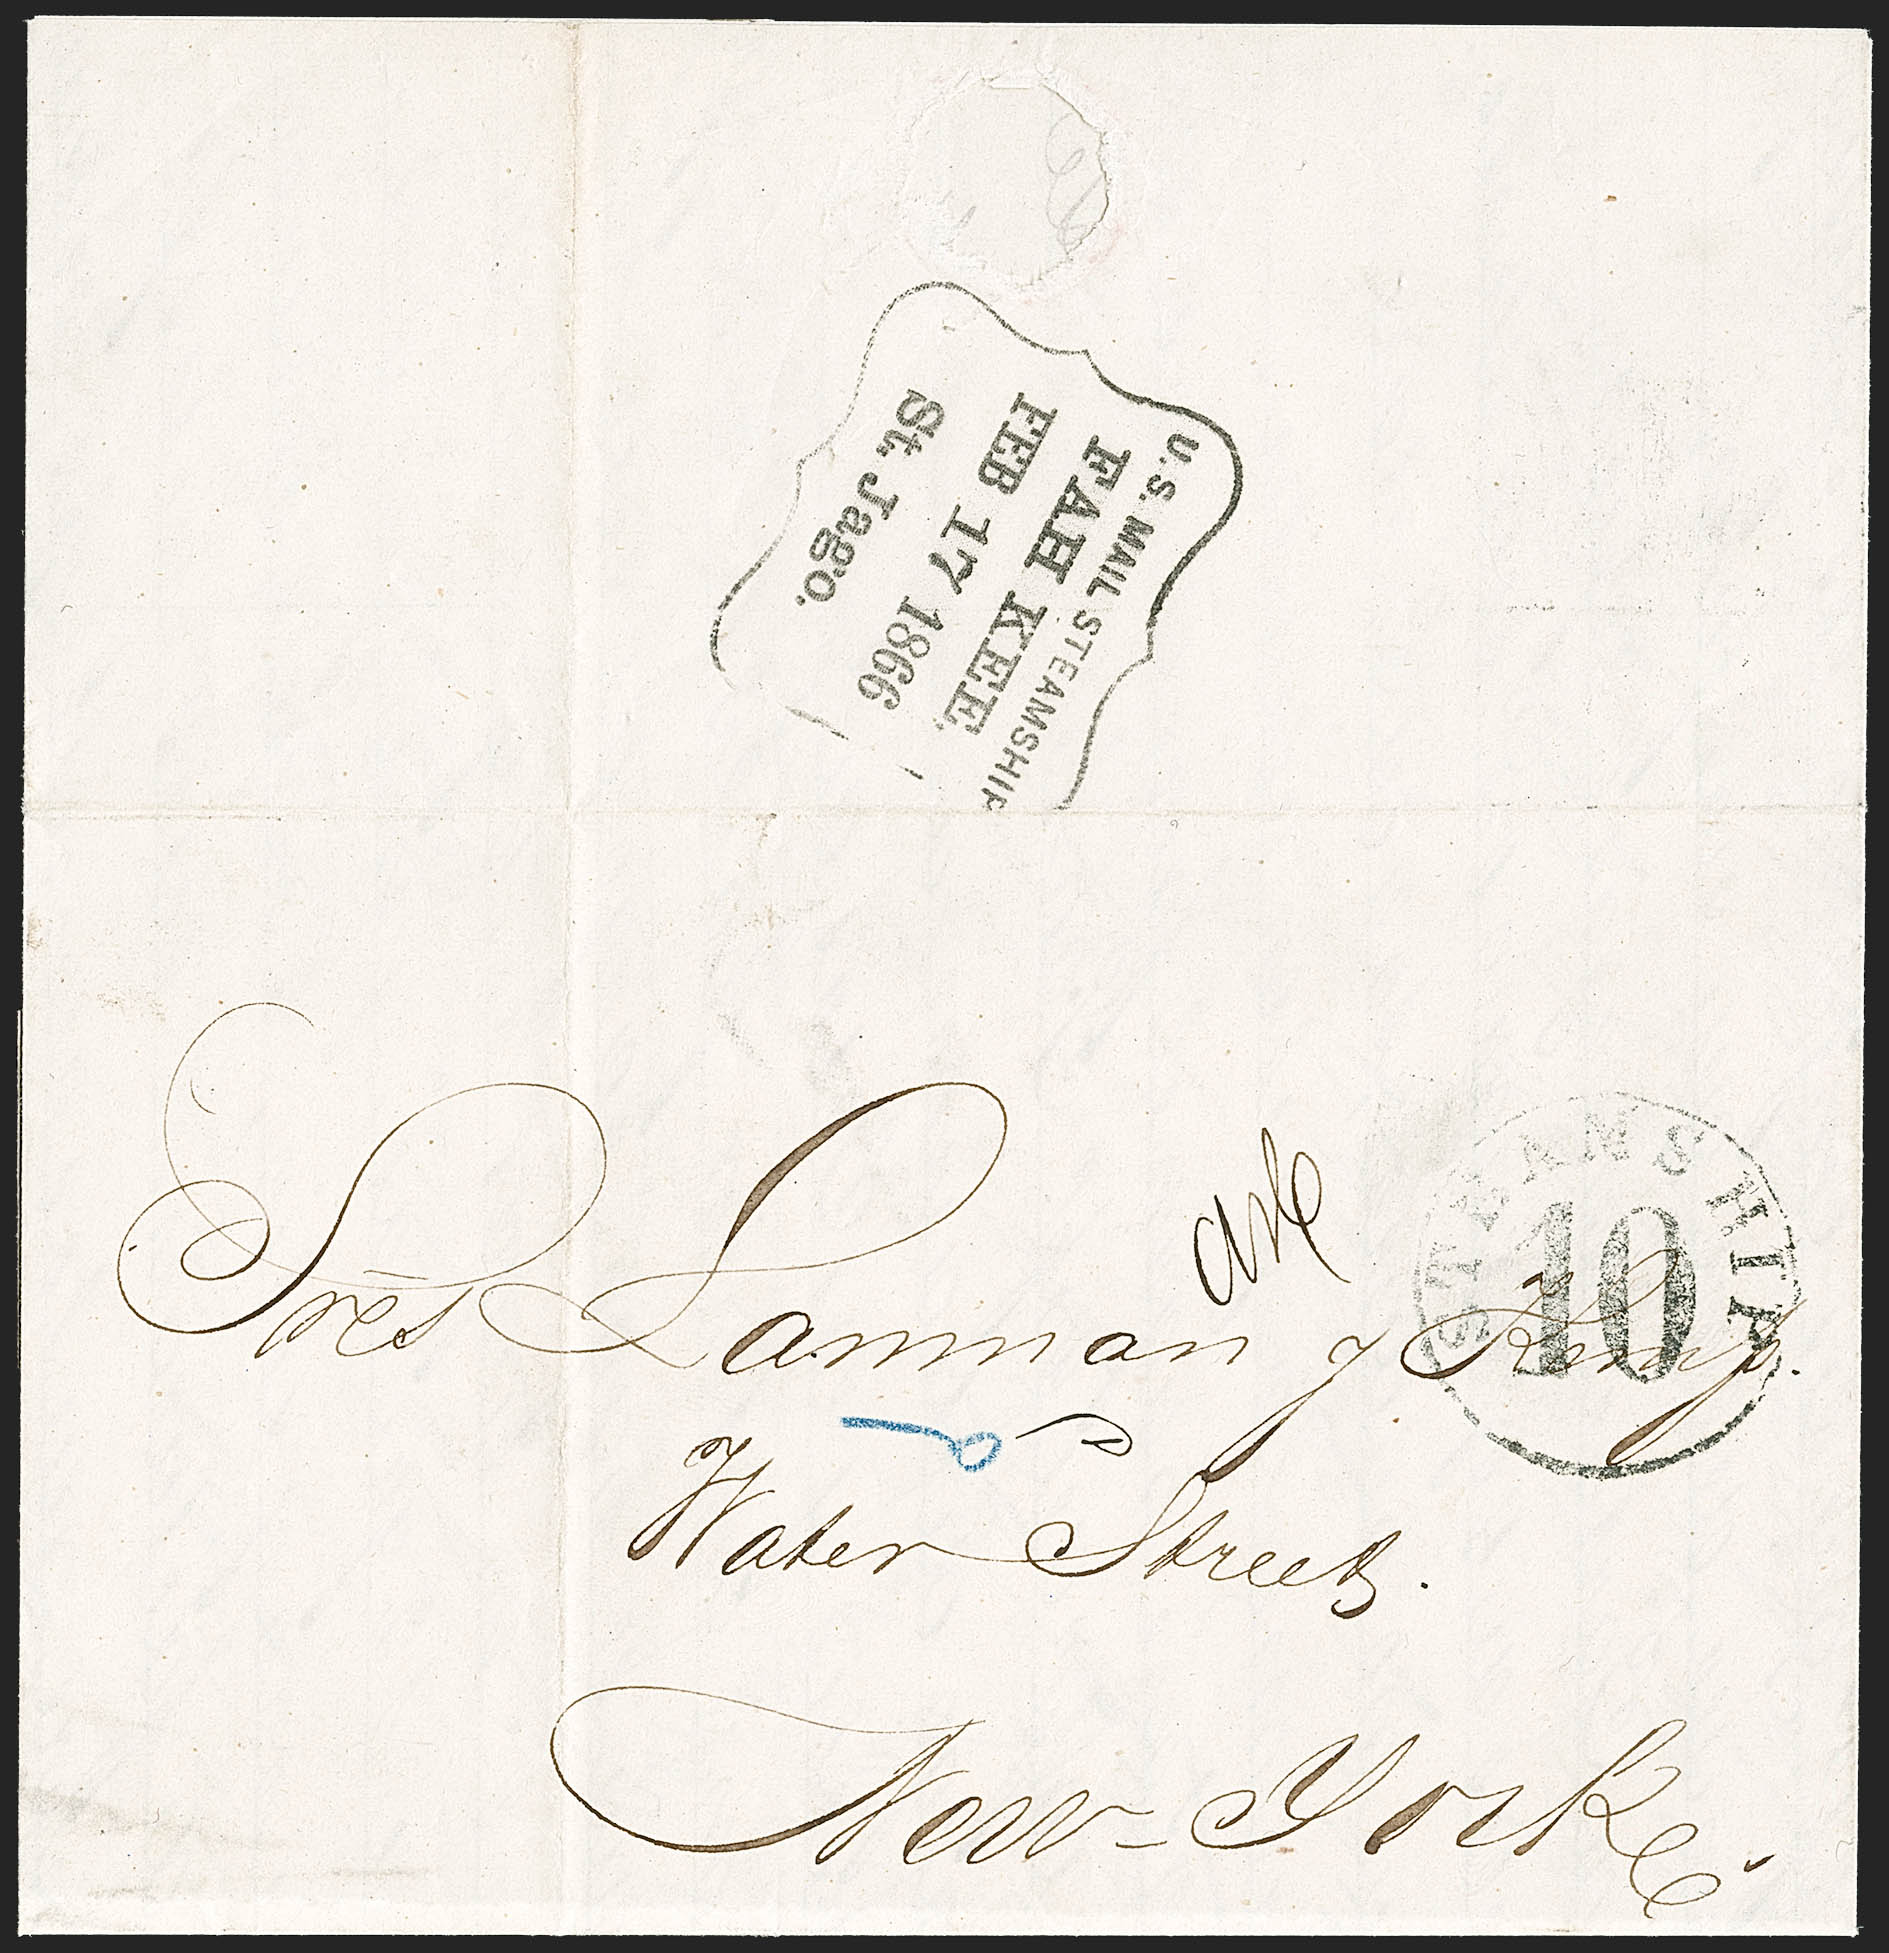 U.S. MAIL STEAMSHIP
FAH KEE.
FEB 17 1866
St. Jago.
STEAMSHIP
10
Sres Lanman y Kemp.
Water Street.
New-York.